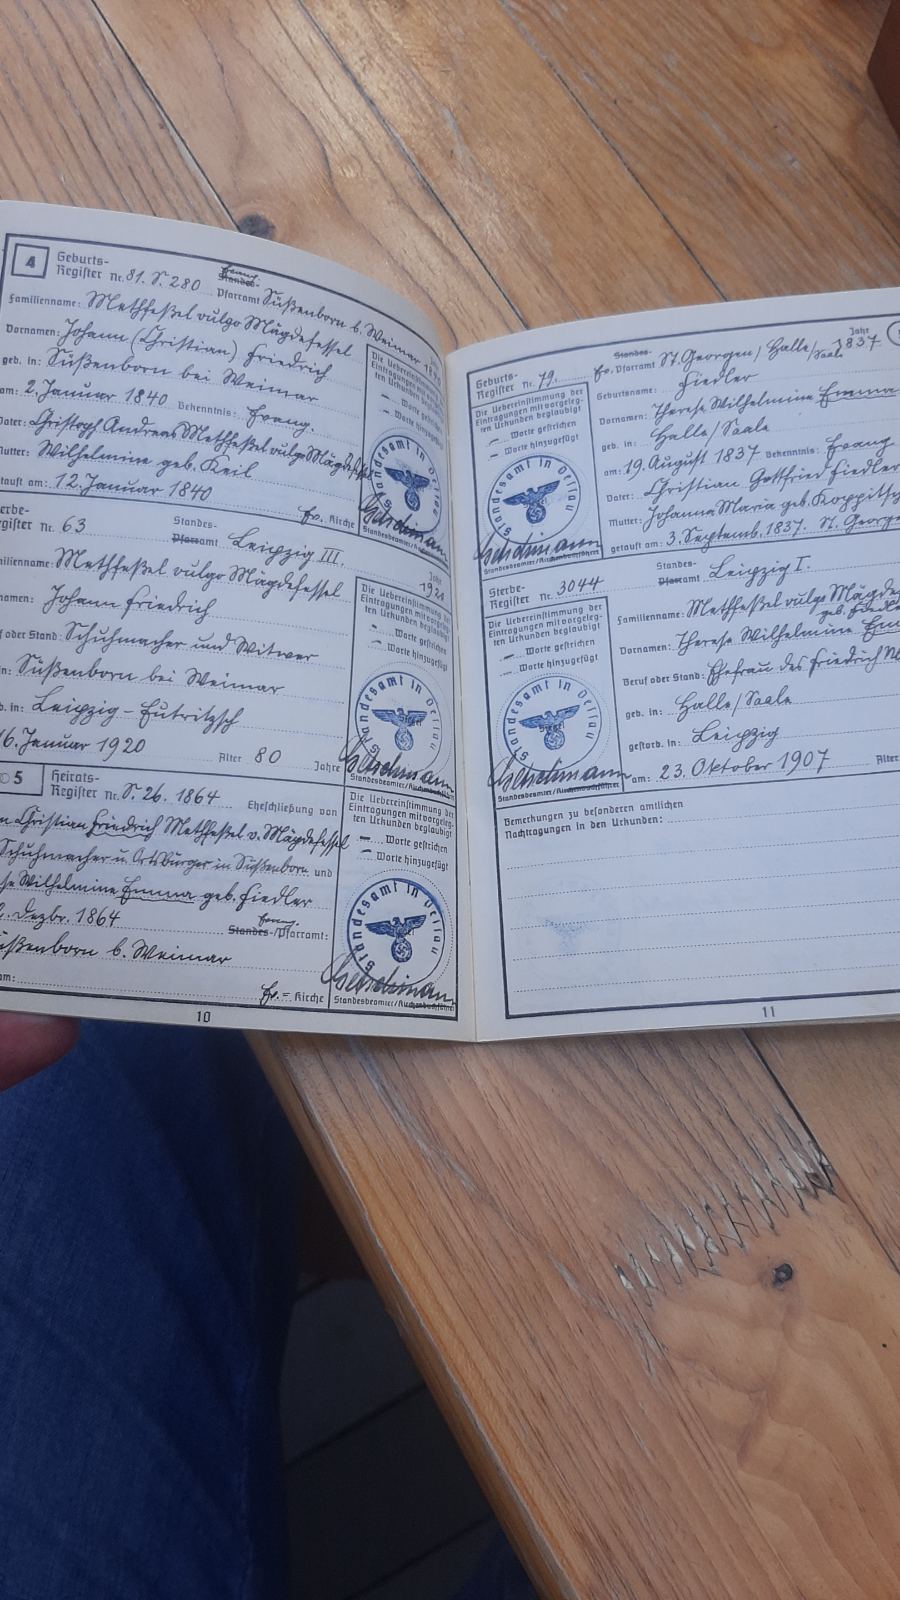 4
Geburts-
Register Nr. 81. S. 280
evang.
Standes-
Pfarramt Süßenborn b. Weimar
Jahr 1840
Familienname: Methfeßel vulgo Mägdefessel
Vornamen: Johann (Christian) Friedrich
geb. in: Süßenborn bei Weimar
am: 2. Januar 1840 Bekenntnis: Evang.
Vater: Christoph Andreas Methfeßel vulgo Mägdefeßel
Mutter: Wilhelmine geb. Keil
getauft am: 12. Januar 1840
Ev. Kirche
Die Uebereinstimmung der
Eintragungen mit vorgeleg-
ten Urkunden beglaubigt
— Worte gestrichen
— Worte hinzugefügt
Standesamt in Dessau
Standesbeamter/Kirchenbuchführer
Sterbe-
Register Nr. 63
Standes-
Pfarramt Leipzig III.
Jahr
Familienname: Methfeßel vulgo Mägdefessel
Vornamen: Johann Friedrich
Beruf oder Stand: Schuhmacher und Witwer
geb. in: Süßenborn bei Weimar
gestorb. in: Leipzig-Eutritzsch
16. Januar 1920 Alter 80 Jahre
Die Uebereinstimmung der
Eintragungen mit vorgeleg-
ten Urkunden beglaubigt
— Worte gestrichen
— Worte hinzugefügt
Standesamt in Dessau
Siegel
Standesbeamter/Kirchenbuchführer
5
Heirats-
Register Nr. S. 26. 1864 Eheschließung von
Christian Friedrich Methfeßel v. Mägdefessel
Schuhmacher u. Ortsbürger in Süßenborn und
Wilhelmine Emma geb. Fiedler
Dezbr. 1864
evang.
Standes-/Pfarramt:
Süßenborn b. Weimar
Ev. = Kirche
Die Uebereinstimmung der
Eintragungen mit vorgeleg-
ten Urkunden beglaubigt
— Worte gestrichen
— Worte hinzugefügt
Standesamt in Dessau
Standesbeamter/Kirchenbuchführer
10
Geburts-
Register Nr. 79.
Standes-
Ev. Pfarramt St. Georgen/Halle/Saale
Jahr
1837
Geburtsname: Fiedler
Vornamen: Therese Wilhelmine Emma
geb. in: Halle/Saale
am: 19. August 1837 Bekenntnis: Evang
Vater: Christian Gottfried Fiedler
Mutter: Johanna Maria geb. Koppitsch
getauft am: 3. Septemb. 1837. St. George
Die Uebereinstimmung der
Eintragungen mit vorgeleg-
ten Urkunden beglaubigt
— Worte gestrichen
— Worte hinzugefügt
Standesamt in Dessau
Standesbeamter/Kirchenbuchführer
Sterbe-
Register Nr. 3044
Standes-
Pfarramt Leipzig I.
Familienname: Methfeßel vulgo Mägde
geb. Fiedle
Vornamen: Therese Wilhelmine Em
Beruf oder Stand: Ehefrau des Friedrich M
geb. in: Halle/Saale
gestorb. in: Leipzig
am: 23. Oktober 1907 Alter
Die Uebereinstimmung der
Eintragungen mit vorgeleg-
ten Urkunden beglaubigt
— Worte gestrichen
— Worte hinzugefügt
Standesamt in Dessau
Siegel
Standesbeamter/Kirchenbuchführer
Bemerkungen zu besonderen amtlichen
Nachtragungen in den Urkunden:
11